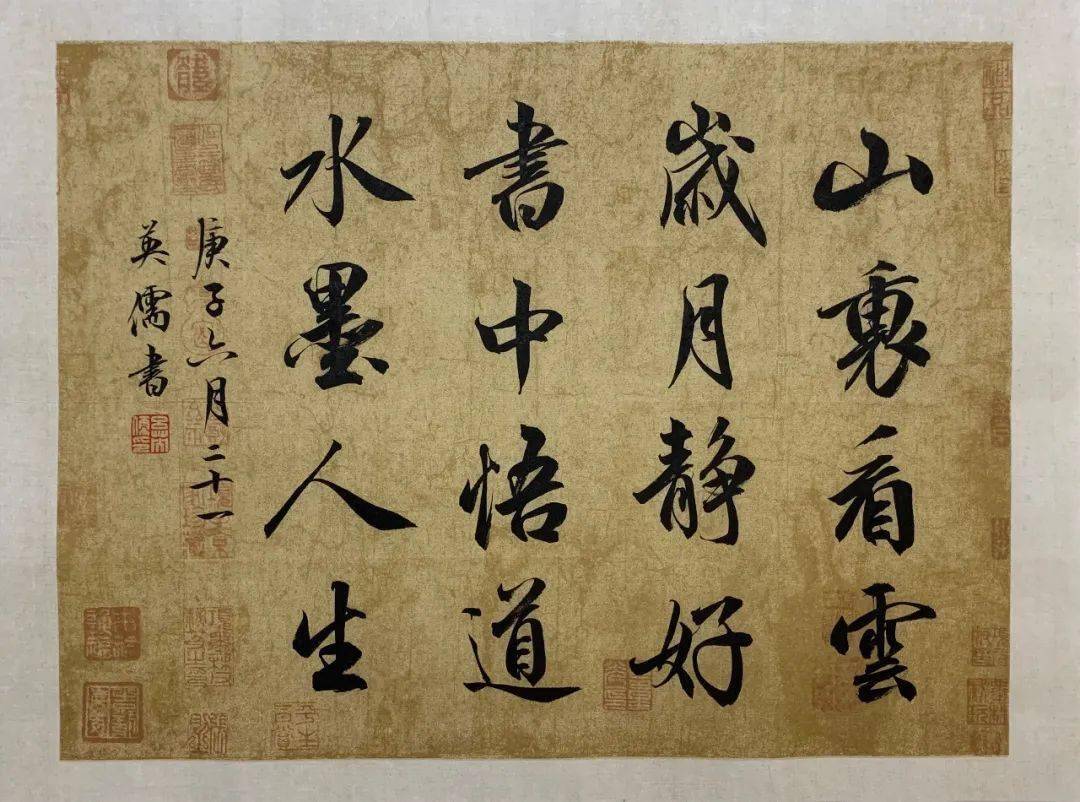 山裏看雲
歲月静好
書中悟道
水墨人生
庚子六月二十一
英儒書